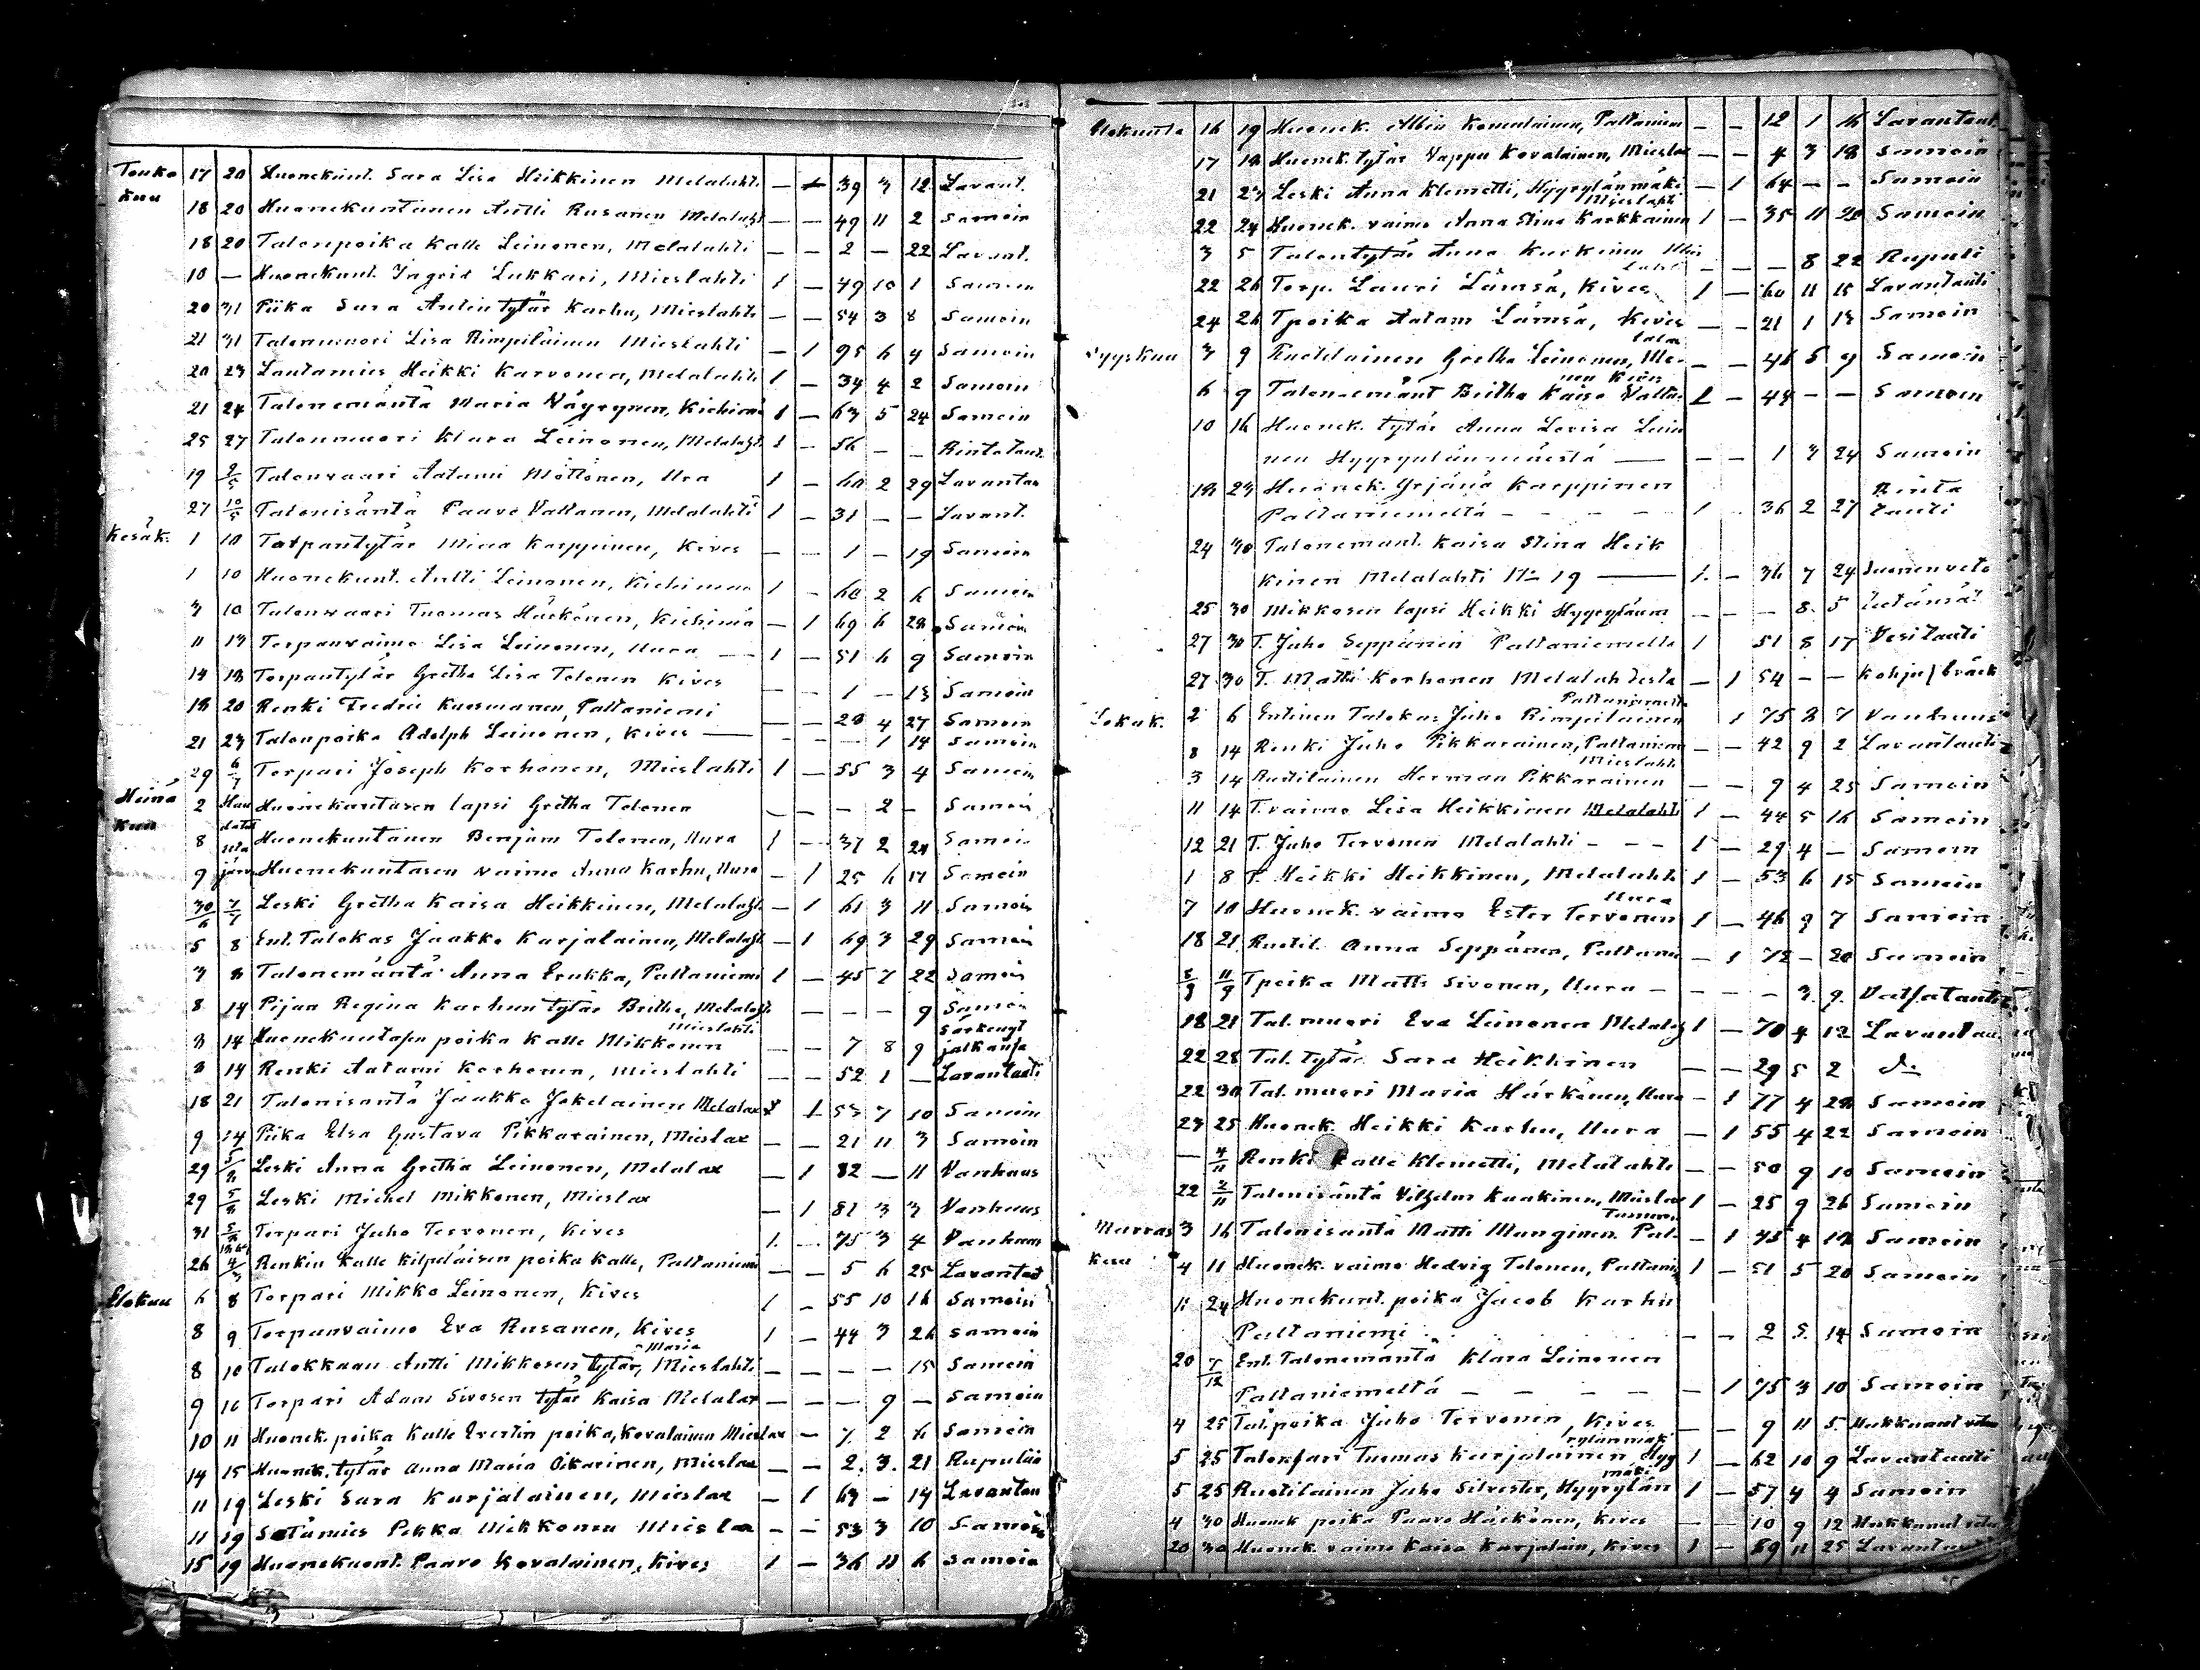 Touko kuu 17 20 Huonekunt. Sara Lisa Heikkinen Melalahti — 1 39 3 12 Lavant.
18 20 Huonekuntanen Antti Rusanen Melalaht — — 49 11 2 Samoin
18 20 Talonpoika Kalle Leinonen, Melalahti — — 2 — 22 Lavant.
10 — Huonekunt. Ingrid Lukkari, Mieslahti 1 — 49 10 1 Samoin
20 31 Piika Sara Antin tytär Karhu, Mieslahti — — 54 3 8 Samoin
21 31 Talonmuori Lisa Rimpiläinen Mieslahti — 1 95 6 4 Samoin
20 23 Lautamies Heikki Karvonen, Melalahti 1 — 34 4 2 Samoin
21 24 Talonemäntä Maria Väyrynen, Kiehimä 1 — 63 5 24 Samoin
25 27 Talonmuori Klara Leinonen, Melalaht. 1 — 56 — — Rintataut.
19 Talonvaari Aatami Möttönen, Ura 1 — 60 2 29 Lavantau
27 10/5 Talonisäntä Paavo Valtanen, Melalahti 1 — 31 — — Lavant.
Kesäk. 1 10 Torpantytär Miina Karppinen, Kives — — 1 — 19 Samoin
1 10 Huonekunt. Antti Leinonen, Kiehimä 1 — 60 2 6 Samoin
3 10 Talonvaari Tuomas Härkönen, Kiehimä — 1 69 6 28 Samoin
11 13 Torpanvaimo Lisa Leinonen, Uura — 1 — 51 6 9 Samoin
14 18 Torpantytär Gretha Lisa Tolonen Kives — — 1 — 13 Samoin
18 20 Renki Fredrii Kuosmanen, Paltaniemi — — 28 4 27 Samoin
21 23 Talonpoika Adolph Leinonen, Kives — — — — 1 14 Samoin
29 6/7 Torpari Joseph Korhonen, Mieslahti 1 — 55 3 4 Samoin
Heinä kuu 2 Huonekuntasen lapsi Gretha Tolonen — — — 2 — Samoin
8 Huonekuntanen Benjam Tolonen, Uura 1 — 37 2 28 Samoin
9 Huonekuntasen vaimo Anna Karhu, Uura — 1 25 6 17 Samoin
30/6 7/7 Leski Gretha Kaisa Heikkinen, Melalaht. — 1 61 3 11 Samoin
5 8 Ent. Talokas Jaakko Karjalainen, Melalaht. — 1 69 3 29 Samoin
3 8 Talonemäntä Anna Erukka, Paltaniemi 1 — 45 7 22 Samoin
8 14 Pijan Regina Karhun tytär Britha, Melalaht. — — — — 9 Samoin
3 14 Huonekuntasen poika Kalle Mikkonen Mieslahti — — 7 8 9 Särkenyt jalkansa
3 14 Renki Aatami Korhonen, Mieslahti — — 52 1 — Lavantauti
18 21 Talonisäntä Jaakko Jokelainen Melalax 1 53 7 10 Samoin
9 14 Piika Elsa Gustava Pikkarainen, Mieslax — — 21 11 3 Samoin
29 5/8 Leski Anna Gretha Leinonen, Melalax — 1 82 — 11 Vanhuus
29 5/8 Leski Michel Mikkonen, Mieslax — 1 81 3 3 Vanhuus
31 5/8 Torpari Juho Tervonen, Kives 1 — 75 3 4 Vanhuus
26 4/3 Renkin Kalle Kilpeläisen poika Kalle, Paltaniemi — — 5 6 25 Lavantaut
Elokuu 6 8 Torpari Mikko Leinonen, Kives 1 — 55 10 16 Samoin
8 9 Torpanvaimo Eva Rusanen, Kives 1 — 44 3 26 Samoin
8 10 Talokkaan Antti Mikkosen tytär Maria, Mieslahti — — — — 15 Samoin
9 16 Torpari Adam Sivosen tytär Kaisa Melalax — — — 9 — Samoin
10 11 Huonek. poika Kalle Evertin poika, Kovalainen Mieslax — 7 2 6 Samoin
14 15 Huonek. tytär Anna Maria Oikarinen, Mieslax — — 2. 3. 21 Rupulii
11 19 Leski Sara Karjalainen, Mieslax — 1 63 — 14 Lavantau
11 19 Sotamies Pekka Mikkonen Mieslax — — 53 3 10 Samoin
15 19 Huonekunt. Paavo Kovalainen, Kives 1 — 36 11 6 Samoin
Elokuulta 16 19 Huonek. Albin Komulainen, Paltaniem — — 12 1 16 Lavantaut.
17 18 Huonek. tytär Vappu Kovalainen, Mieslax — — 4 3 18 Samoin
21 23 Leski Anna Klemetti, Hyyrylänmäki — 1 64 — — Samoin
22 24 Huonek. vaimo Anna Stina Karkkainen Mieslahti 1 — 35 11 20 Samoin
3 5 Talontytär Anna Kurkinen Mieslahti — — — 8 22 Rupuli
22 26 Torp. Lauri Lämsä, Kives 1 — 60 11 15 Lavantauti
24 26 Tpoika Aatam Lämsä, Kives — — 21 1 13 Samoin
Syyskuu 3 9 Ruotilainen Gretha Leinonen, Melalax — — 46 5 9 Samoin
6 9 Talonemänt Britha Kaisa Valtanen Kives 1 — 44 — — Samoin
10 16 Huonek. tytär Anna Lovisa Leino
nen Hyyrynlänmäestä — — — 1 3 24 Samoin
18 23 Huonek. Yrjänä Karppinen
Paltaniemeltä — — — — 1 — 36 2 27 Rinta tauti
24 30 Talonemänt. Kaisa Stina Heik
kinen Melalahti No 19 — 1. — 36 7 24 Suonenveto
25 30 Mikkosen lapsi Heikki Hyyrylänm — — — 8. 5
27 30 T. Juho Seppänen Paltaniemellä 1 51 8 17 Vesitauti
27 30 T. Matti Korhonen Melalahdesta — 1 54 — — Kohju/bråck
Lokak. 2 6 Entinen Talokas Juho Rimpiläinen Paltaniemeltä 1 75 2 7 Vanhuus
8 14 Renki Juho Pikkarainen, Paltaniem — — 42 9 2 Lavantauti
3 14 Ruotilainen Herman Pikkarainen Mieslahti — — 9 4 25 Samoin
11 14 T. vaimo Lisa Heikkinen Melalahti 1 — 44 5 16 Samoin
12 21 T. Juho Tervonen Melalahti — — — 1 — 29 4 — Samoin
1 8 T. Heikki Heikkinen, Melalahti 1 — 53 6 15 Samoin
7 10 Huonek. vaimo Ester Tervonen Uura 1 — 46 9 7 Samoin
18 21 Ruotil. Anna Seppänen, Paltani — 1 72 — 20 Samoin
5/9 11/9 Tpoika Matti Sivonen, Uura — — — — 3. 9. Vatsatauti
18 21 Tal. muori Eva Leinonen Melalax 1 — 70 4 12 Lavantau
22 28 Tal. tytär Sara Heikkinen — — 29 5 2 do
22 30 Tal. muori Maria Härkönen, Uura — 1 77 4 28 Samoin
23 25 Huonek. Heikki Karhu, Uura — 1 55 4 22 Samoin
— 4/11 Renki Kalle Klemetti, Melalahti — — 50 9 10 Samoin
22 2/11 Talonisäntä Vilhelm Kuakinen, Mieslax 1 — 25 9 26 Samoin
Marras kuu 3 16 Talonisäntä Matti Manginen Pal — 1 75 4 12 Samoin
4 11 Huonek. vaimo Hedvig Tolonen, Paltani 1 — 51 5 20 Samoin
11 24 Huonekunt. poika Jacob Karhu
Paltaniemi — — 2 5. 14 Samoin
20 7/12 Ent. Talonemäntä Klara Leinonen
Paltaniemeltä — — — — — 1 75 3 10 Samoin
4 25 Tal. poika Juho Tervonen, Kives — — 9 11 5.
5 25 Talonvari Tuomas Karjalainen, Hyyrylänmäk 1 — 62 10 9 Lavantauti
5 25 Ruotilainen Juho Silvester, Hyyrylänmäki 1 — 57 4 4 Samoin
4 30 Huonek poika Paavo Härkönen, Kives — — 10 9 12
20 30 Huonek. vaimo Kaisa Karjalain, Kives 1 — 59 11 25 Lavantaut